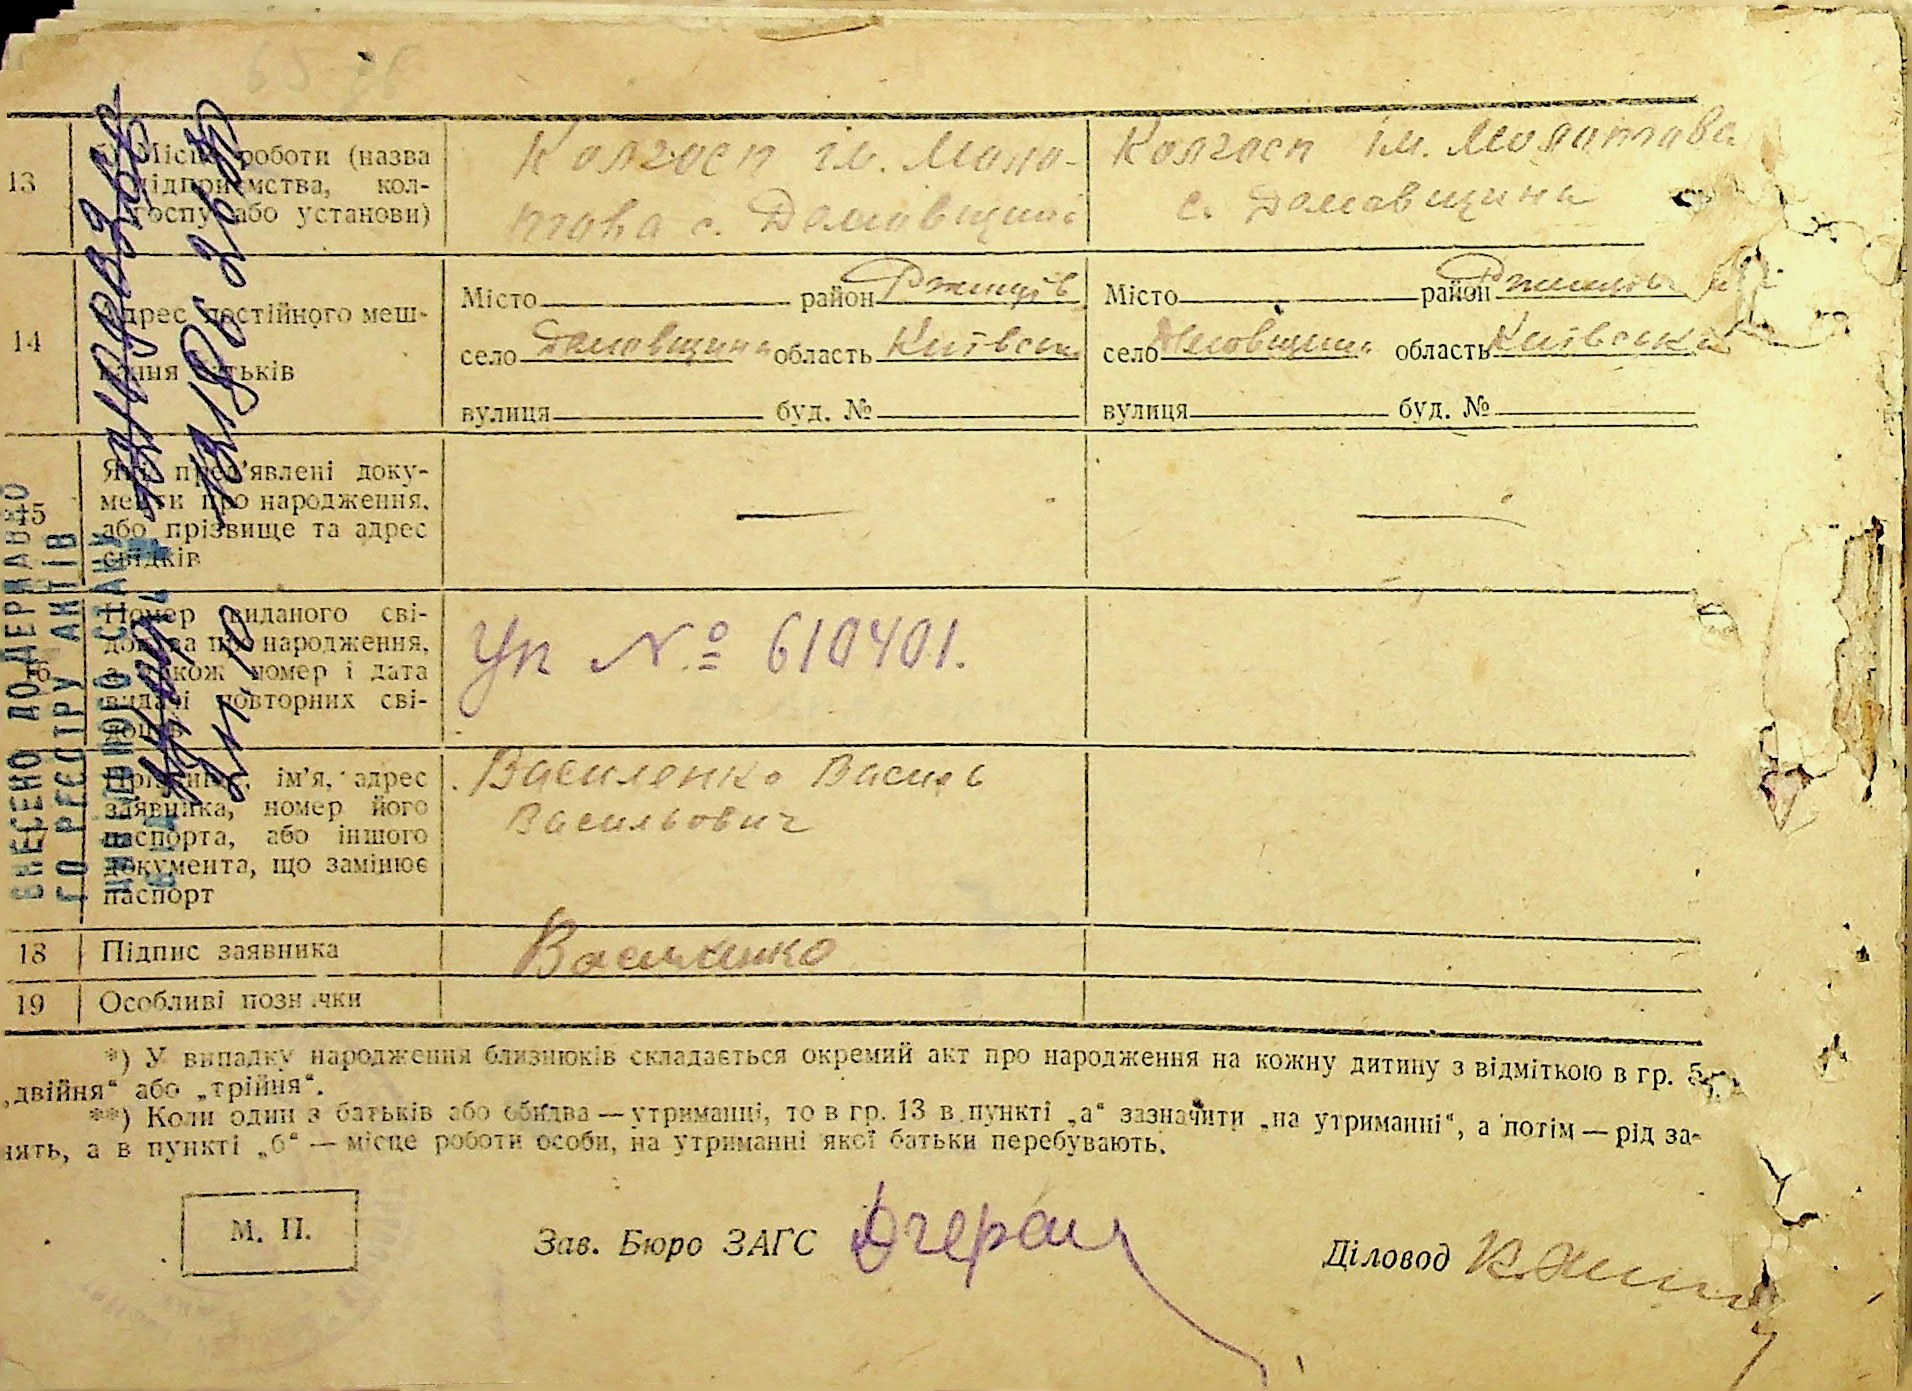 13
б) Місце роботи (назва
підприємства, кол-
госпу або установи)
Колгосп ім. Моло-
това с. Дамовщині
Колгосп ім. Молотова
с. Дамовщина
14
Адрес постійного меш-
кання батьків
Місто район Ржищів
село Дамовщина область Київськ
вулиця буд. №
Місто район Ржищів
село Дамовщина область Київська
вулиця буд. №
15
Які пред'явлені доку-
менти про народження,
або прізвище та адрес
свідків
16
Номер виданого сві-
доцтва про народження,
а також номер і дата
видачі повторних сві-
доцтв
Уп № 610401.
17
Прізвище, ім'я, адрес
заявника, номер його
паспорта, або іншого
документа, що замінює
паспорт
Василенко Василь
Васильович
18 Підпис заявника
Василенко
19 Особливі позначки
*) У випадку народження близнюків складається окремий акт про народження на кожну дитину з відміткою в гр. 5
„двійня“ або „трійня“.
**) Коли один з батьків або обидва — утриманці, то в гр. 13 в пункті „а“ зазначити „на утриманні“, а потім — рід за-
нять, а в пункті „б“ — місце роботи особи, на утриманні якої батьки перебувають.
М. П.
Зав. Бюро ЗАГС
Діловод
ВНЕСЕНО ДО ДЕРЖАВНО
ГО РЕЄСТРУ АКТІВ
ЦИВІЛЬНОГО СТАНУ